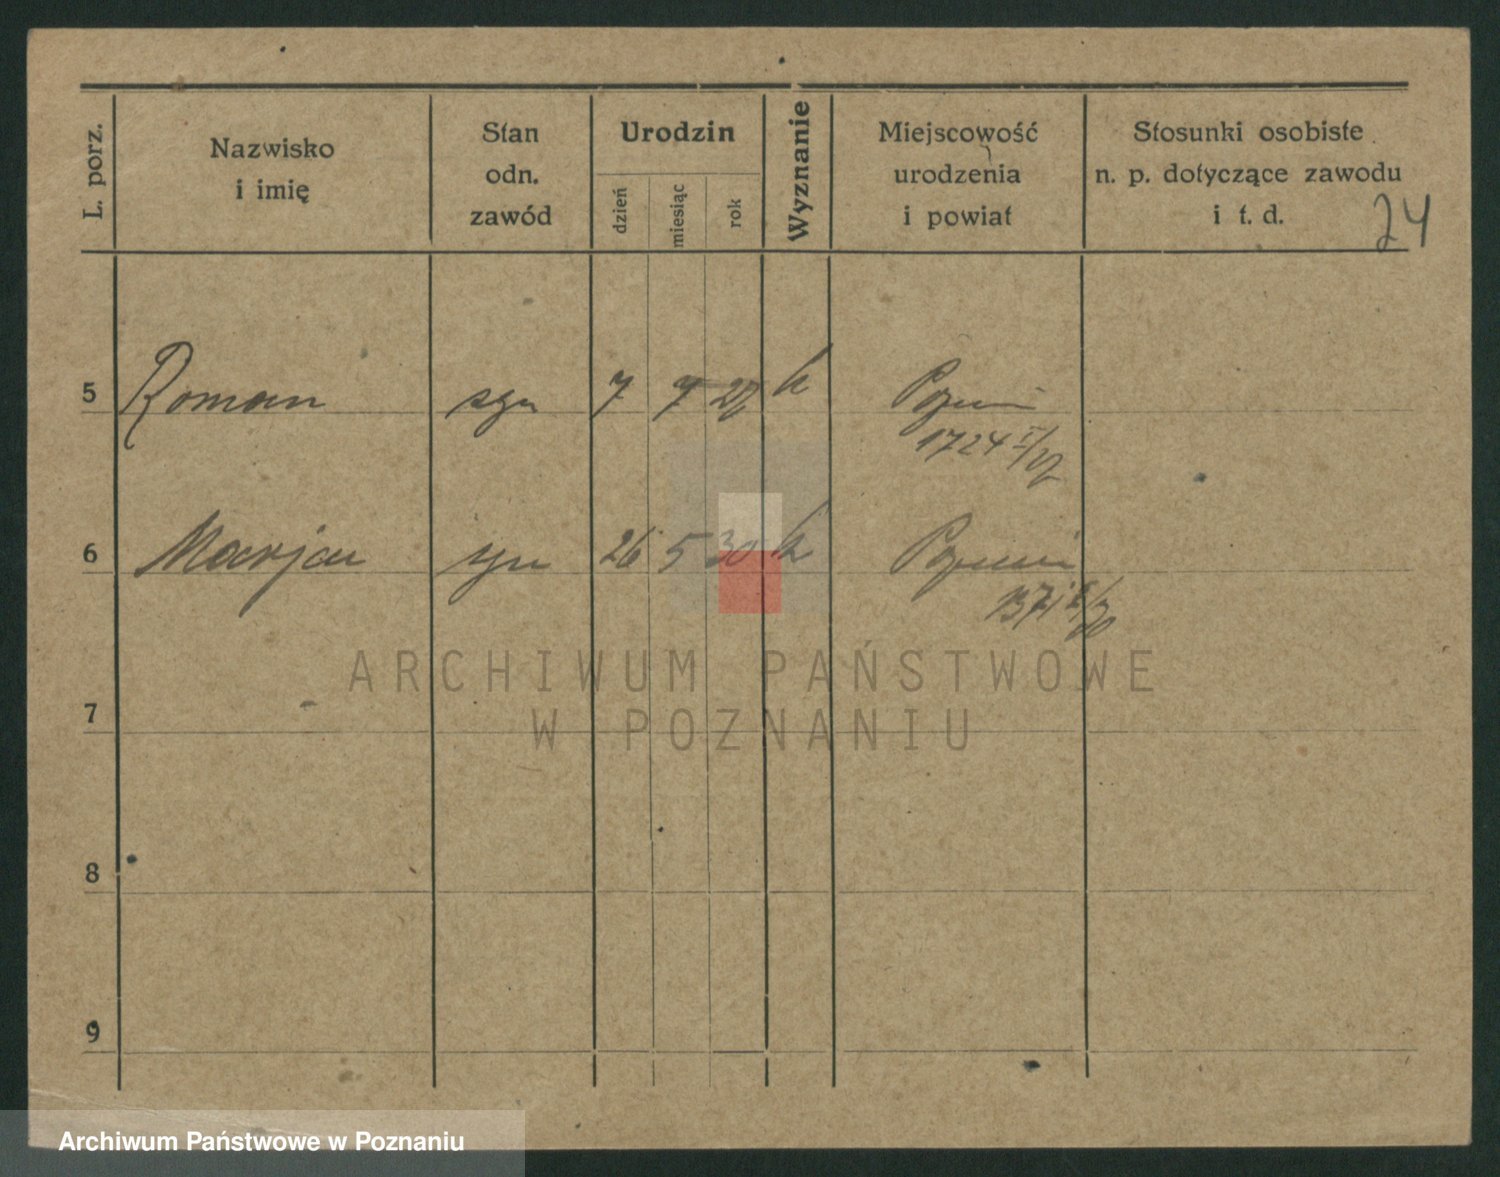 L. porz.
Nazwisko
i imię
Stan
odn.
zawód
Urodzin
dzień
miesiąc
rok
Wyznanie
Miejscowość
urodzenia
i powiat
Stosunki osobiste
n. p. dotyczące zawodu
i t. d.
24
5 Roman syn 7 7 27 k Poznań
1724 I/27
6 Marjan syn 26 5 30 k Poznań
1371 /30
7
8
9
ARCHIWUM PAŃSTWOWE
W POZNANIU
Archiwum Państwowe w Poznaniu